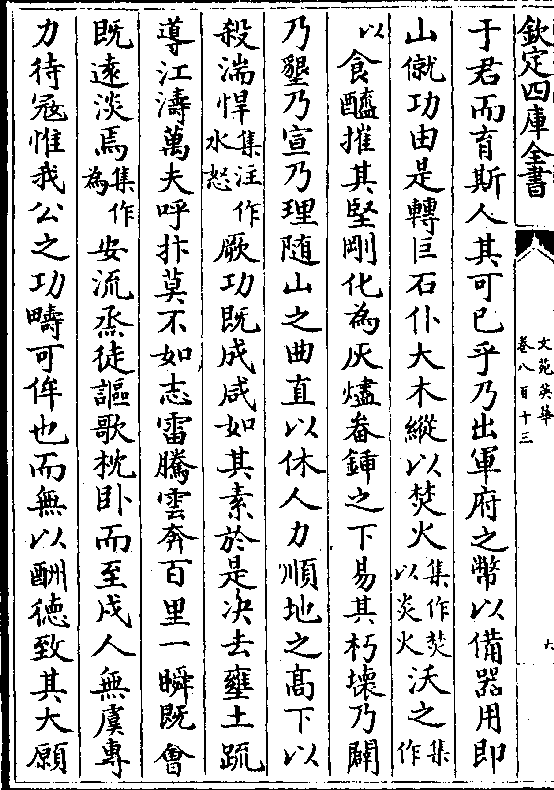 欽定四庫全書
文苑英華
卷八百十三
于君而育斯人其可已乎乃出軍府之幣以備器用即
山僦功由是轉巨石仆大木縱以焚火集作焚以炎火沃之集作
以食醯摧其堅剛化為灰燼畚鍤之下易其朽壞乃闢
乃墾乃宣乃理随山之曲直以休人力順地之髙下以
殺湍悍集注作水怒厥功既成咸如其素於是决去壅土䟽
導江濤萬夫呼抃莫不如志雷騰雲奔百里一瞬既會
既逺淡焉集作為安流烝徒謳歌枕卧而至戍人無虞專
力待冦惟我公之功疇可侔也而無以酬德致其大願